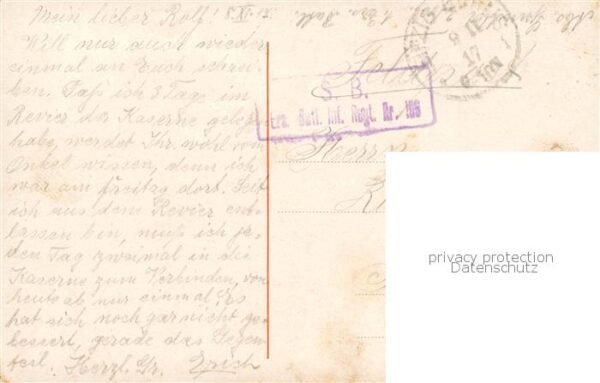 Mein lieber Rolf! 8. XI. 17.
Will nur auch wieder
einmal an Euch schrei-
ben. Daß ich 3 Tage im
Revier der Kaserne gelegen
habe, werdet Ihr wohl vom
Onkel wissen, denn ich
war am Freitag dort. Seit
ich aus dem Revier ent-
lassen bin, muß ich je-
den Tag zweimal in die
Kaserne zum Verbinden, von
heute ab nur einmal. Es
hat sich noch gar nicht ge-
bessert, gerade das Gegen-
teil. Herzl. Gr. Erich
17
S. B.
Ers. Batl. Inf. Regt. Nr. 106
Herrn
privacy protection
Datenschutz